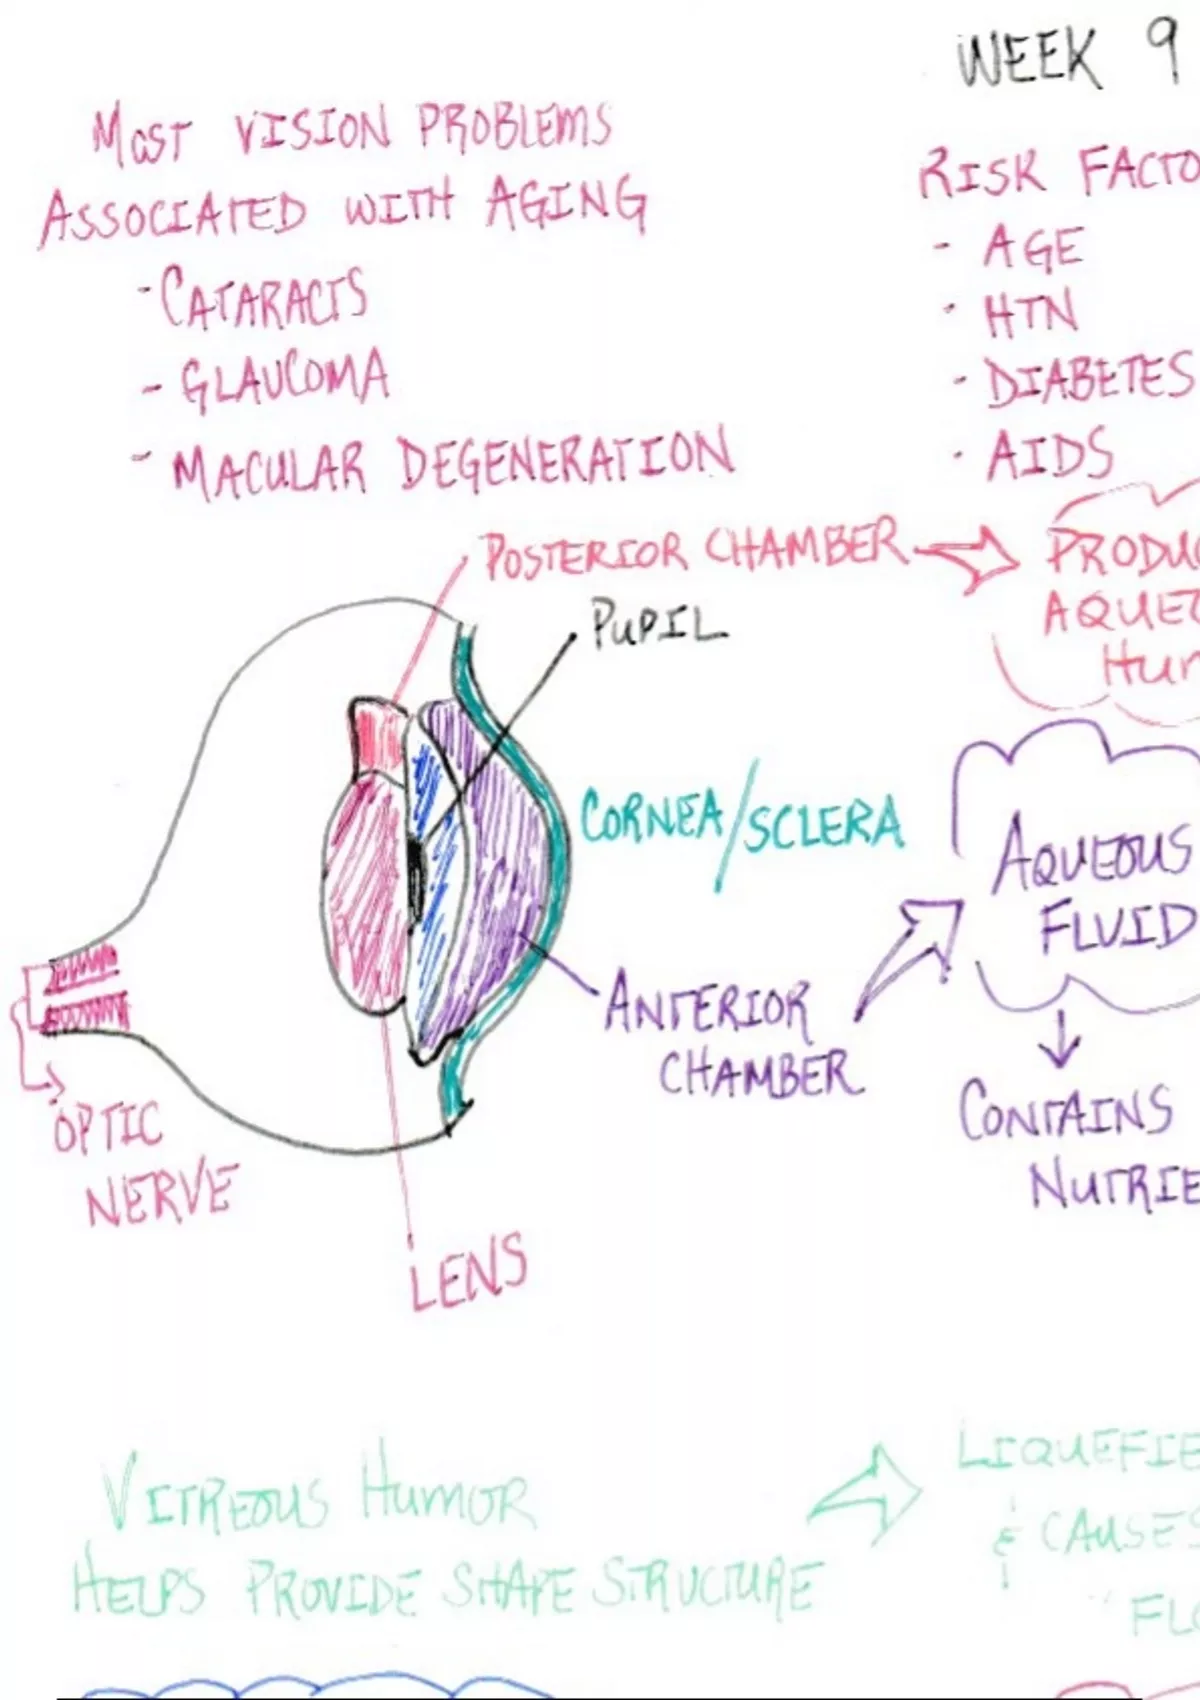 WEEK 9
MOST VISION PROBLEMS
ASSOCIATED WITH AGING
- CATARACTS
- GLAUCOMA
- MACULAR DEGENERATION
RISK FACTO
- AGE
- HTN
- DIABETES
- AIDS
POSTERIOR CHAMBER
PRODU
AQUEO
HUM
PUPIL
CORNEA/SCLERA
AQUEOUS
FLUID
ANTERIOR
CHAMBER
CONTAINS
NUTRIE
OPTIC
NERVE
LENS
VITREOUS HUMOR
HELPS PROVIDE SHAPE STRUCTURE
LIQUEFIE
& CAUSES
"FLO